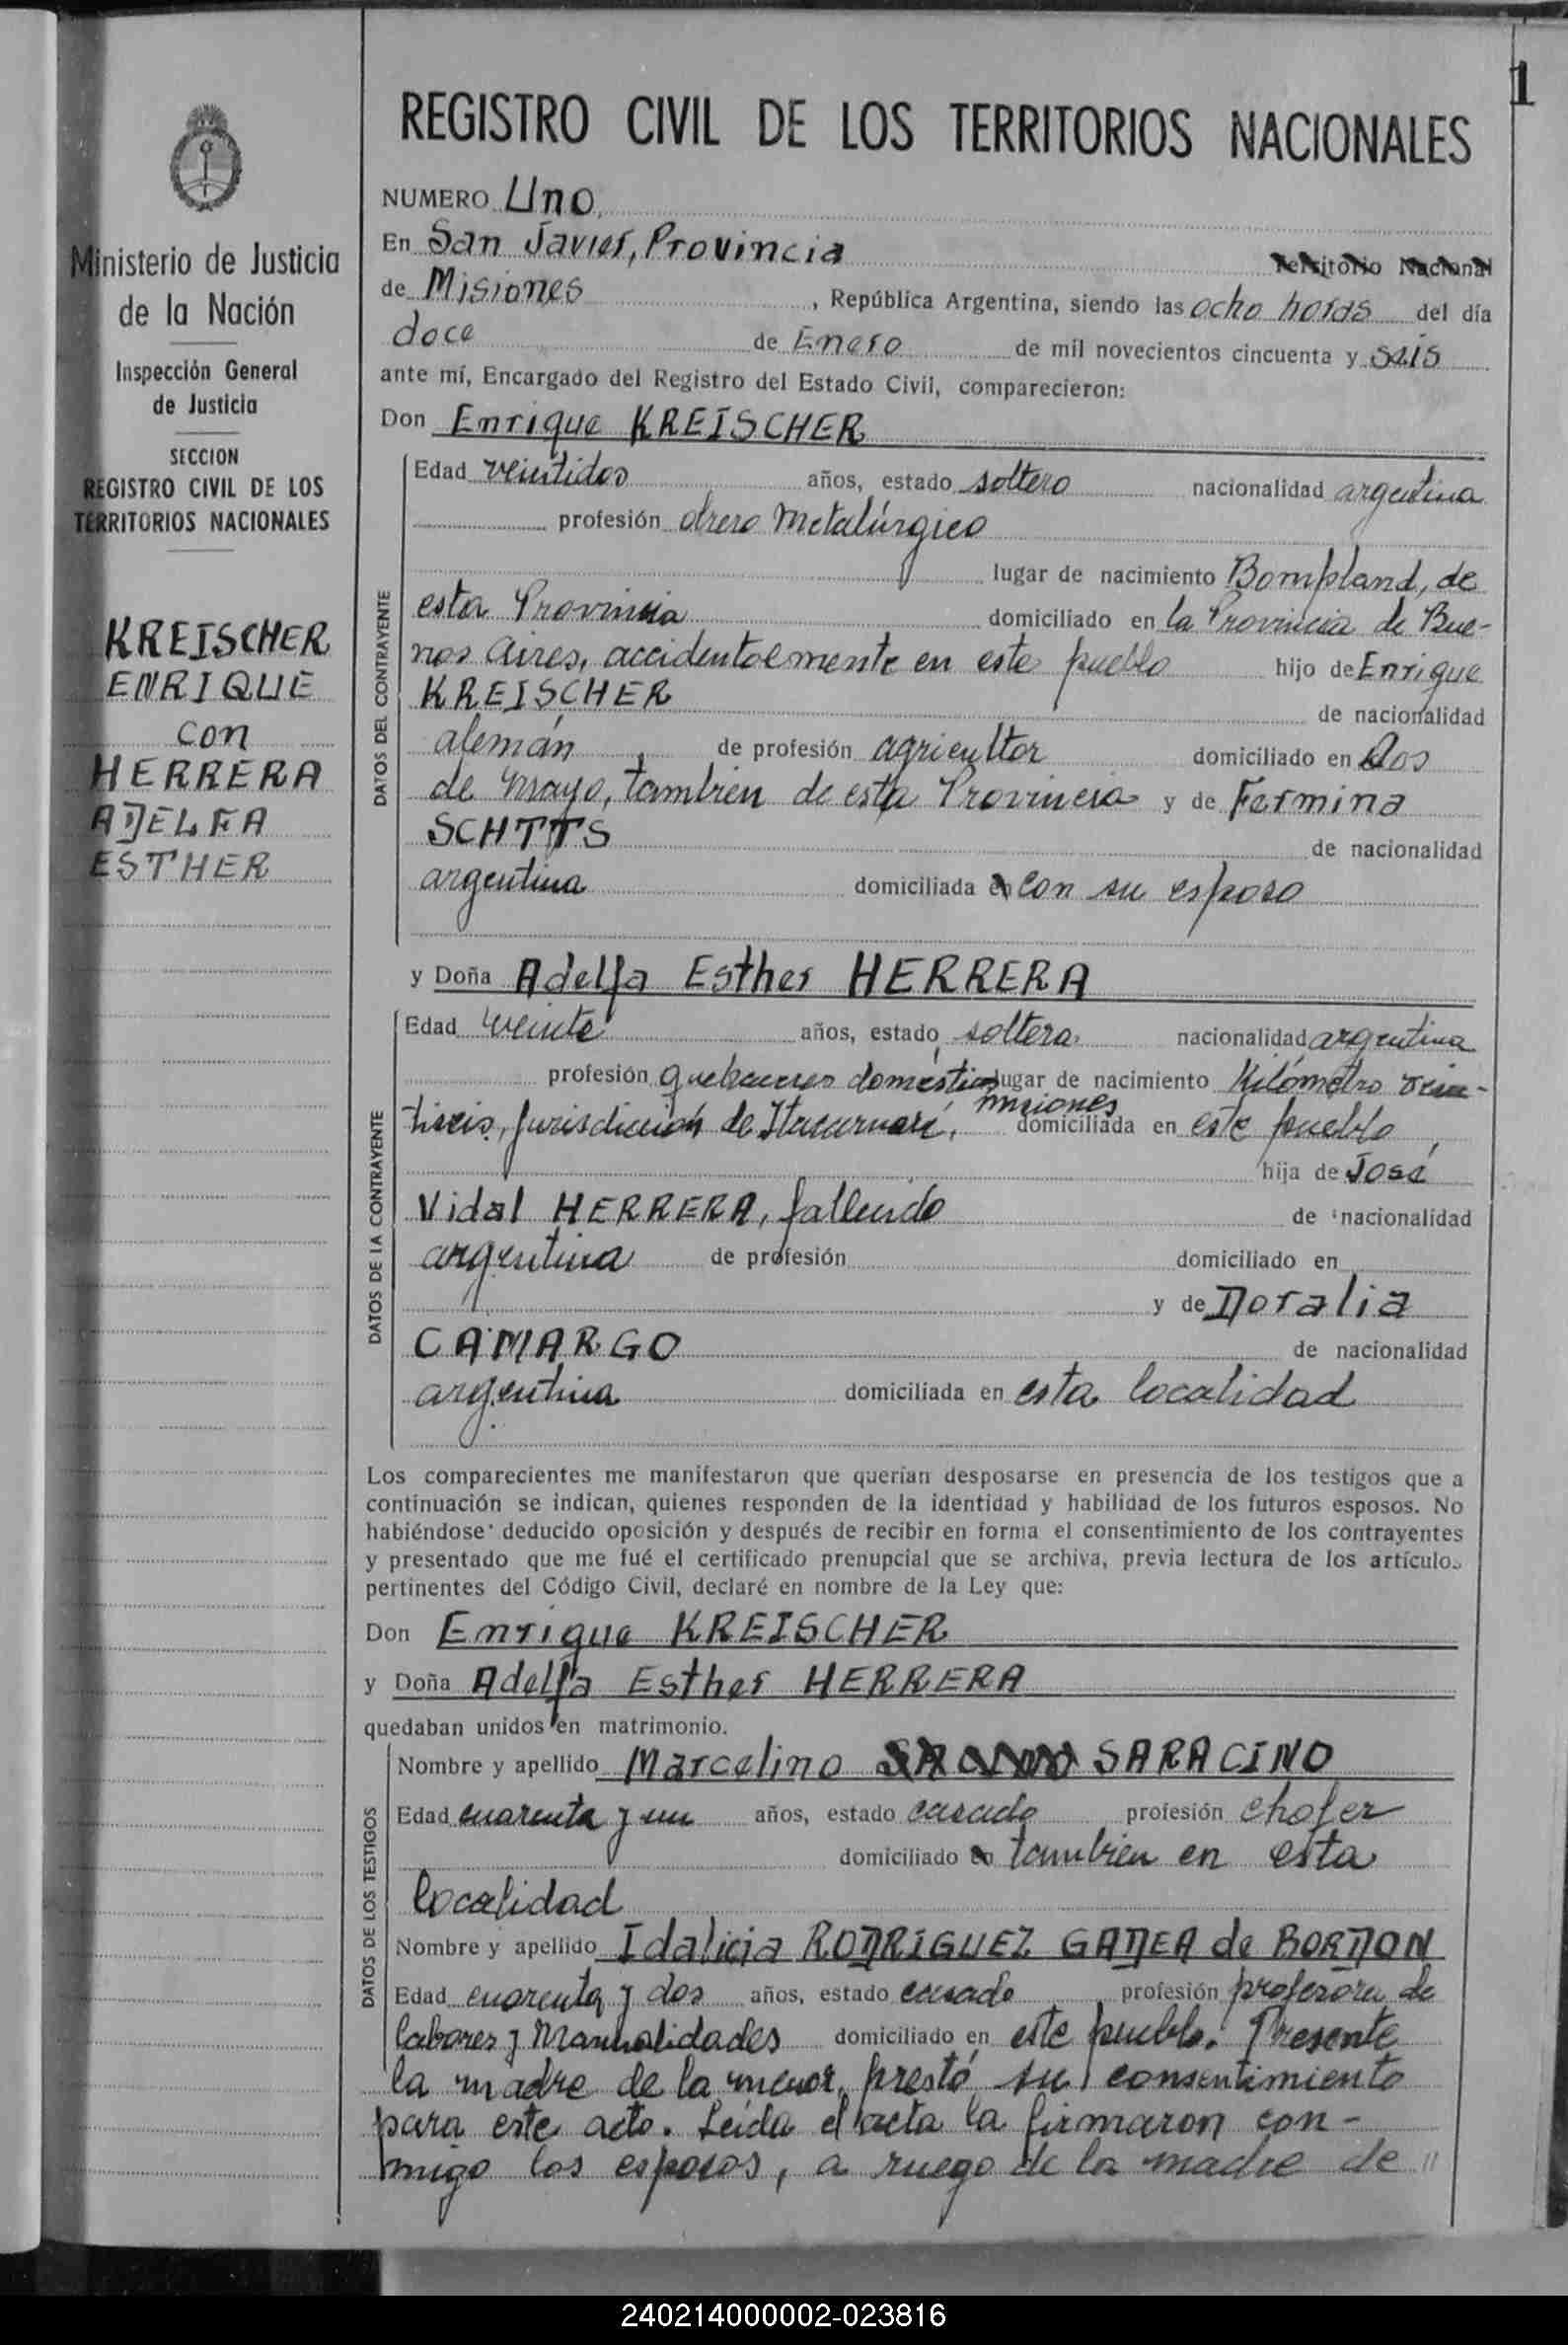 1
REGISTRO CIVIL DE LOS TERRITORIOS NACIONALES
Ministerio de Justicia
de la Nación
Inspección General
de Justicia
SECCION
REGISTRO CIVIL DE LOS
TERRITORIOS NACIONALES
KREISCHER
ENRIQUE
con
HERRERA
ADELFA
ESTHER
NUMERO Uno
En San Javier, Provincia Territorio Nacional
de Misiones, República Argentina, siendo las ocho horas del día
doce de Enero de mil novecientos cincuenta y seis
ante mí, Encargado del Registro del Estado Civil, comparecieron:
Don Enrique KREISCHER
DATOS DEL CONTRAYENTE
Edad veintidos años, estado soltero nacionalidad argentina
profesión obrero metalúrgico
lugar de nacimiento Bompland, de
esta Provincia domiciliado en la Provincia de Bue-
nos Aires, accidentalmente en este pueblo hijo de Enrique
KREISCHER de nacionalidad
alemán, de profesión agricultor domiciliado en Dos
de Mayo, tambien de esta Provincia y de Fermina
SCHTTS de nacionalidad
argentina domiciliada en con su esposo
y Doña Adelfa Esther HERRERA
DATOS DE LA CONTRAYENTE
Edad veinte años, estado soltera nacionalidad argentina
profesión quehaceres domésticos lugar de nacimiento Kilómetro vein-
tiseis, Jurisdicción de Itacaruaré, Misiones domiciliada en este pueblo,
hija de José
Vidal HERRERA, fallecido de nacionalidad
argentina de profesión domiciliado en
y de Doralia
CAMARGO de nacionalidad
argentina domiciliada en esta localidad
Los comparecientes me manifestaron que querían desposarse en presencia de los testigos que a
continuación se indican, quienes responden de la identidad y habilidad de los futuros esposos. No
habiéndose deducido oposición y después de recibir en forma el consentimiento de los contrayentes
y presentado que me fué el certificado prenupcial que se archiva, previa lectura de los artículos
pertinentes del Código Civil, declaré en nombre de la Ley que:
Don Enrique KREISCHER
y Doña Adelfa Esther HERRERA
quedaban unidos en matrimonio.
DATOS DE LOS TESTIGOS
Nombre y apellido Marcelino SARACINO
Edad cuarenta y un años, estado casado profesión chofer
domiciliado en tambien en esta
localidad
Nombre y apellido Idalicia RODRIGUEZ GADEA de BORDON
Edad cuarenta y dos años, estado casado profesión profesora de
labores y Manualidades domiciliado en este pueblo. Presente
la madre de la menor, prestó su consentimiento
para este acto. Leída el acta la firmaron con-
migo los esposos, a ruego de la madre de "
240214000002-023816